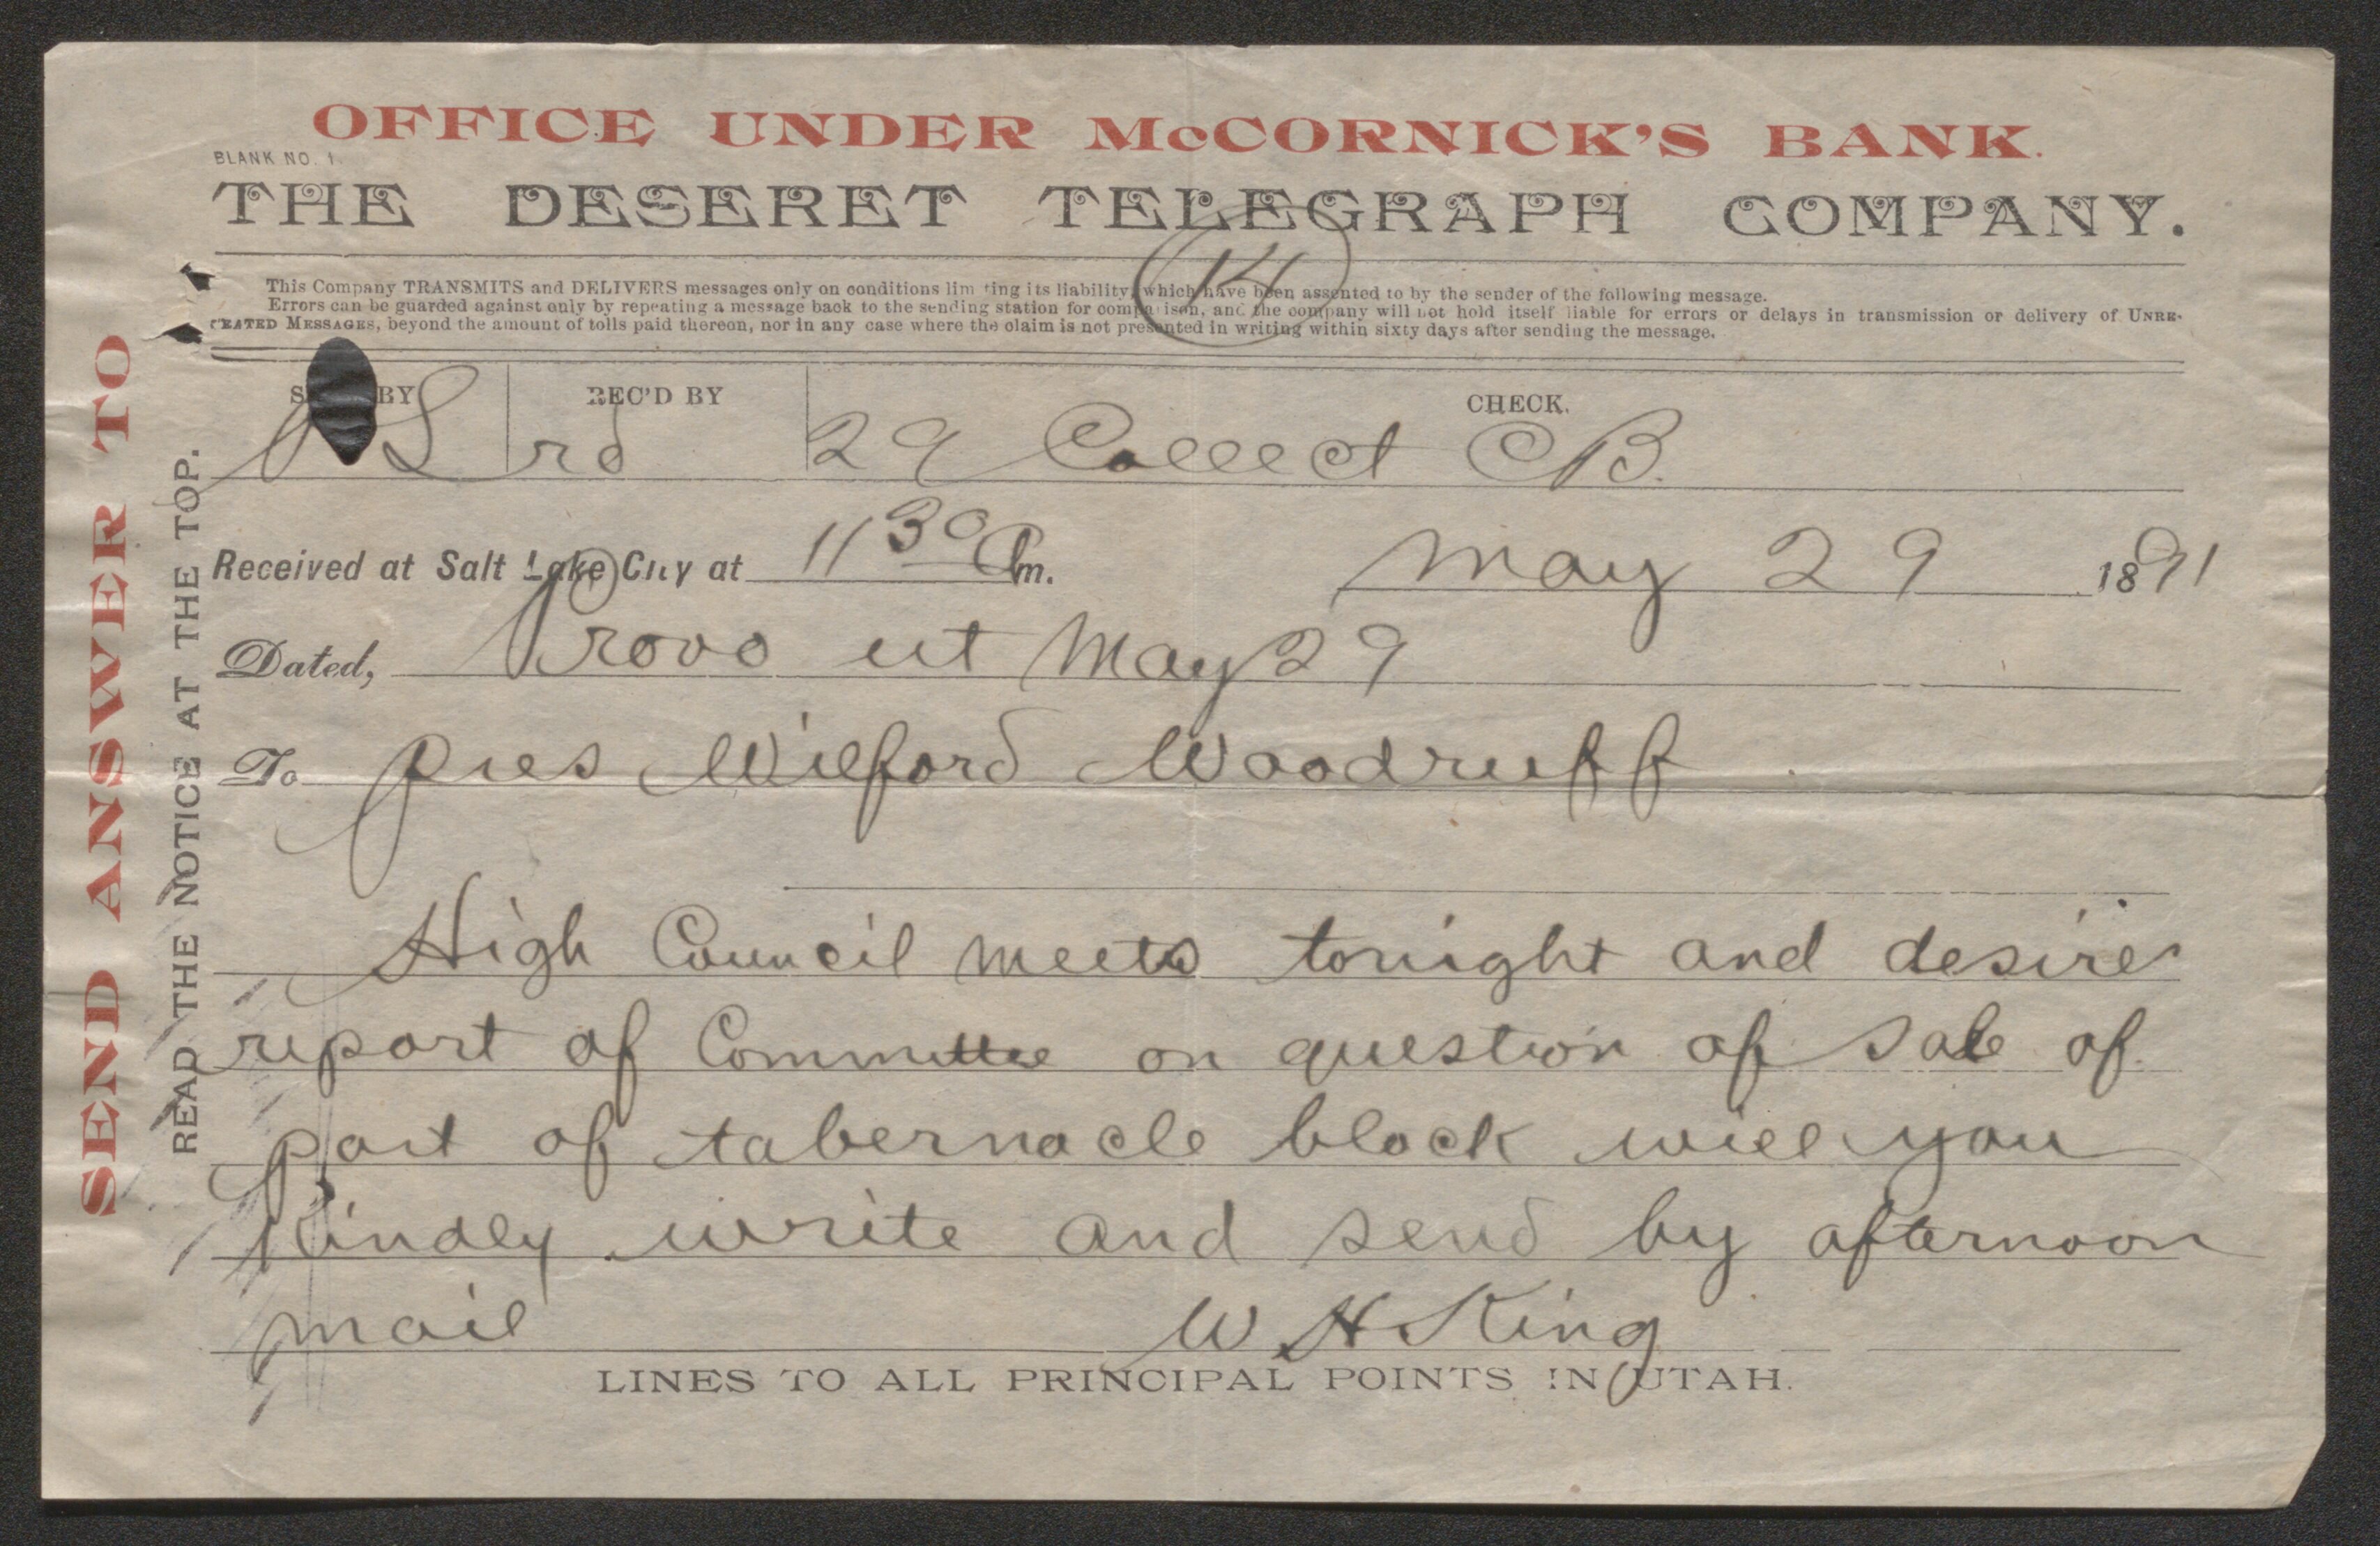 OFFICE UNDER McCORNICK'S BANK.
BLANK NO. 1.
THE DESERET TELEGRAPH COMPANY.
14
This Company TRANSMITS and DELIVERS messages only on conditions limiting its liability, which have been assented to by the sender of the following message.
Errors can be guarded against only by repeating a message back to the sending station for comparison, and the company will not hold itself liable for errors or delays in transmission or delivery of UNRE-
PEATED MESSAGES, beyond the amount of tolls paid thereon, nor in any case where the claim is not presented in writing within sixty days after sending the message.
BY REC'D BY CHECK.
S rd 29 Collect CB.
Received at Salt Lake City at 11 30 a m. May 29 1891
Dated, Provo ut May 29
To pres Wilford Woodruff
High Council meets tonight and desires
report of Committee on question of sale of
part of tabernacle block will you
kindly write and send by afternoon
mail W H King
LINES TO ALL PRINCIPAL POINTS IN UTAH.
SEND ANSWER TO
READ THE NOTICE AT THE TOP.